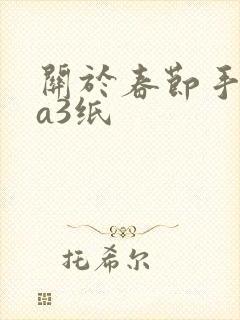 關於春節手
a3纸
托希尔